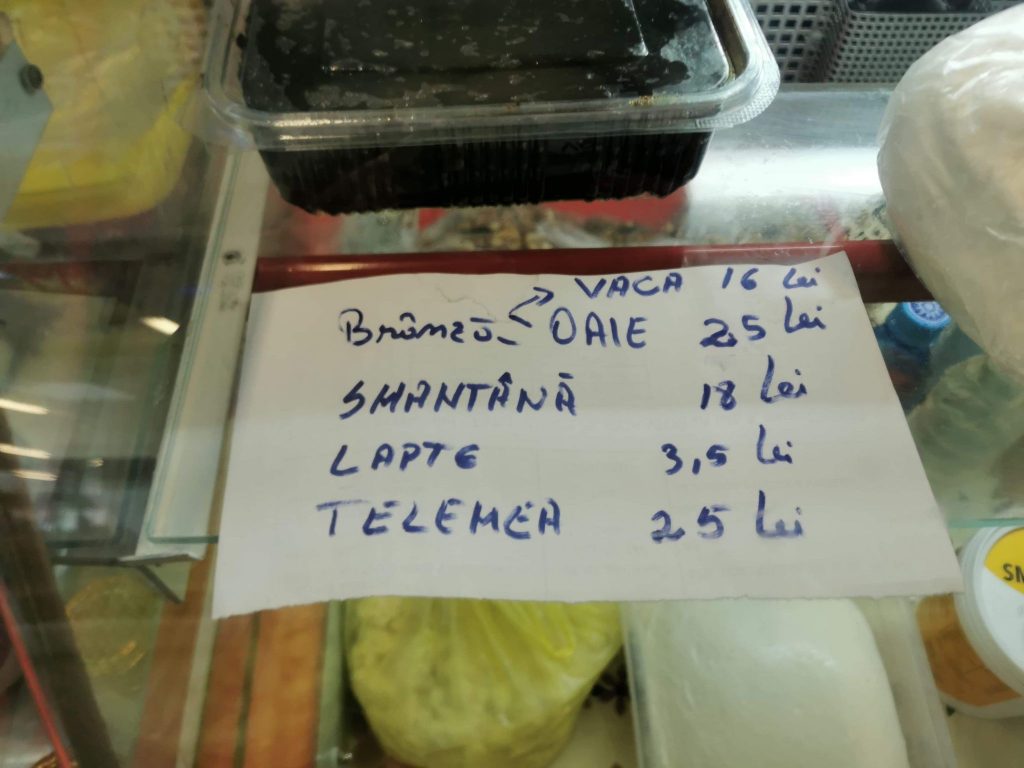 VACA 16 Lei
Brânză OAIE 25 Lei
SMANTÂNĂ 18 Lei
LAPTE 3,5 Lei
TELEMEA 25 Lei
SM